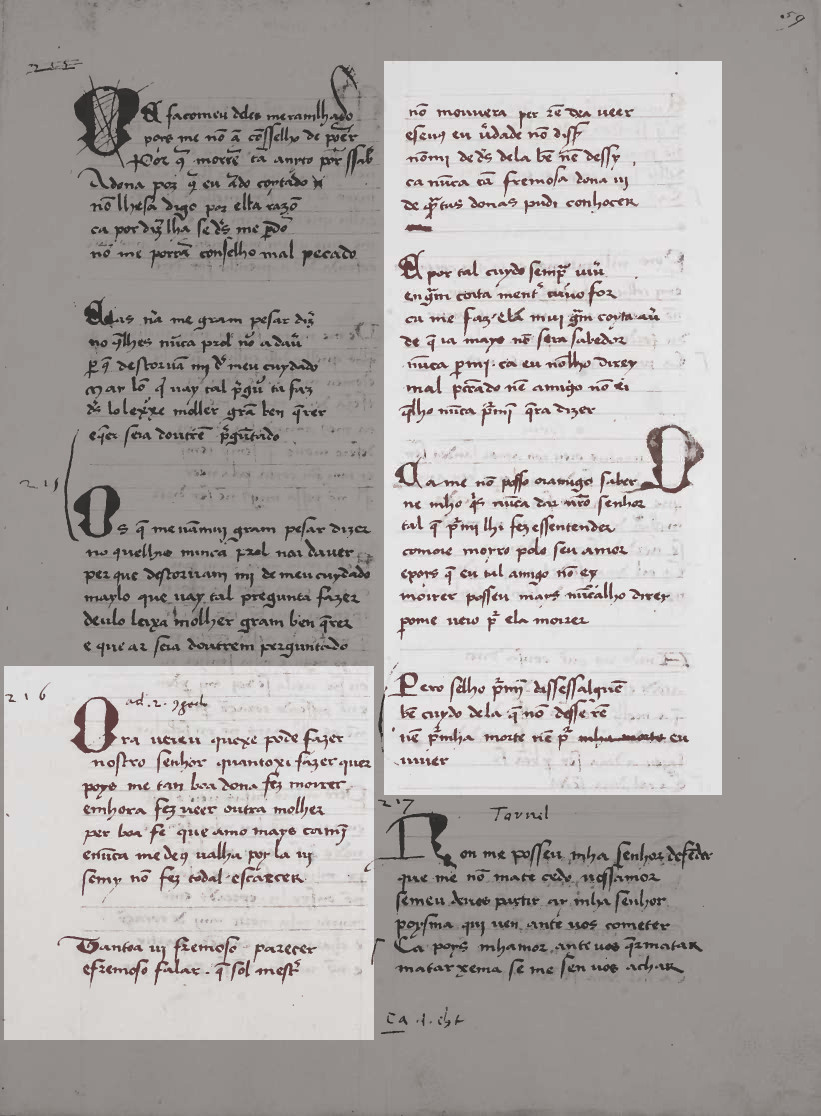 59
E facomeu deles merauilhado
poys me nõ a cõsselho de poer
Adona por q̃ eu ado coytado
nõ lhesa digo por ella razõ
ca por diz̃ lha se ds̃ me ꝑdõ
nõ me porrã conselho mal pecado
Mas nũca me gram pesar diz̃
no q̃lhes nũca prol
mi meu cuydado
tal faz̃
moller grã ben q̃rer
seia doutrẽ p̃gũtado
215
Os q̃ me uam mui gram pesar dizer
no quelhis nunca prol nai dauer
per que destoruam mi de meu cuydado
maylo que uay tal pregunta fazer
deulo leixa molher gram ben q̃rer
e que ar seia doutrem perguntado
216
Ora ueieu quexe pode fazer
nostro senhor quantoxi fazer quer
poys me tan boa dona fez morrer
emhora fez ueer outra molher
per boa fe que amo mays ca mĩ
enũca me deus ualha poy la ui
semy nõ fez todal escaecer
Tantoa ui fremoso parecer
efremoso falar . q̃ sol mest̃
nõ mouuera per rẽ dea ueer
eseu9 eu ũdade nõ diss̃
nõmi de ds̃ dela bẽ nẽ dessy
ca nũca tã fremosa dona ui
de q̃tas donas pudi conhocer
E por tal cuydo semp̃ uiũ
en g̃m coita ment̃ uiuo for
ca me faz ela mui g̃m coyta aũ
de q̃ ia mays nõ sera sabedor
nũca ꝑ mi . ca eu nõlho direy
mal pecado nẽ amigo nõ ei
q̃lho nũca p̃mĩ q̃ra dizer
Ca me nõ posso oramigo saber
ne mho q̃s nũca dar nr̃o senhor
tal q̃ p̃mi lhi fezessentender
comoie moyro polo seu amor
epoys q̃ eu tal amigo nõ ey
moirer posseu mays nũcalho direy
pome ueio p̃ ela moirer
Pero selho p̃mĩ dissessalguẽ
bẽ cuydo dela q̃ nõ desse rẽ
nẽ p̃mha morte nẽ p̃ mha morte eu
uiuer
217
Tornel
Non me posseu mha senhor defẽder
que me nõ mate cedo uossamor
semeu deuos partir ar mha senhor
poysma qui uen ante uos cometer
Ca poys mhamor ante uos q̃r matar
matar xema se me sen uos achar